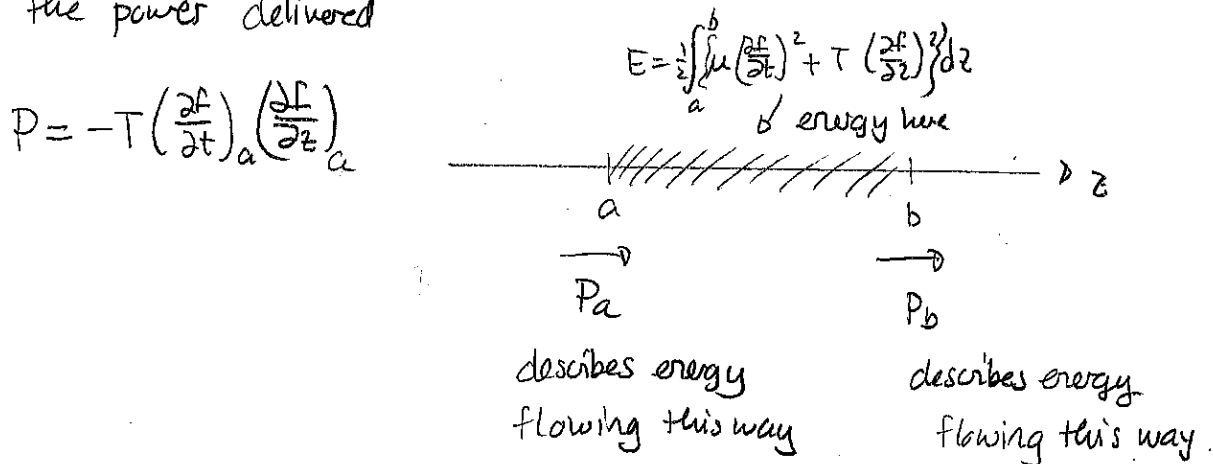 the power delivered
P = -T (∂f/∂t)_a (∂f/∂z)_a
E = ½∫_a^b {μ(∂f/∂t)² + T(∂f/∂z)²}dz
energy here
z
a
b
P_a
P_b
describes energy
flowing this way
describes energy
flowing this way.